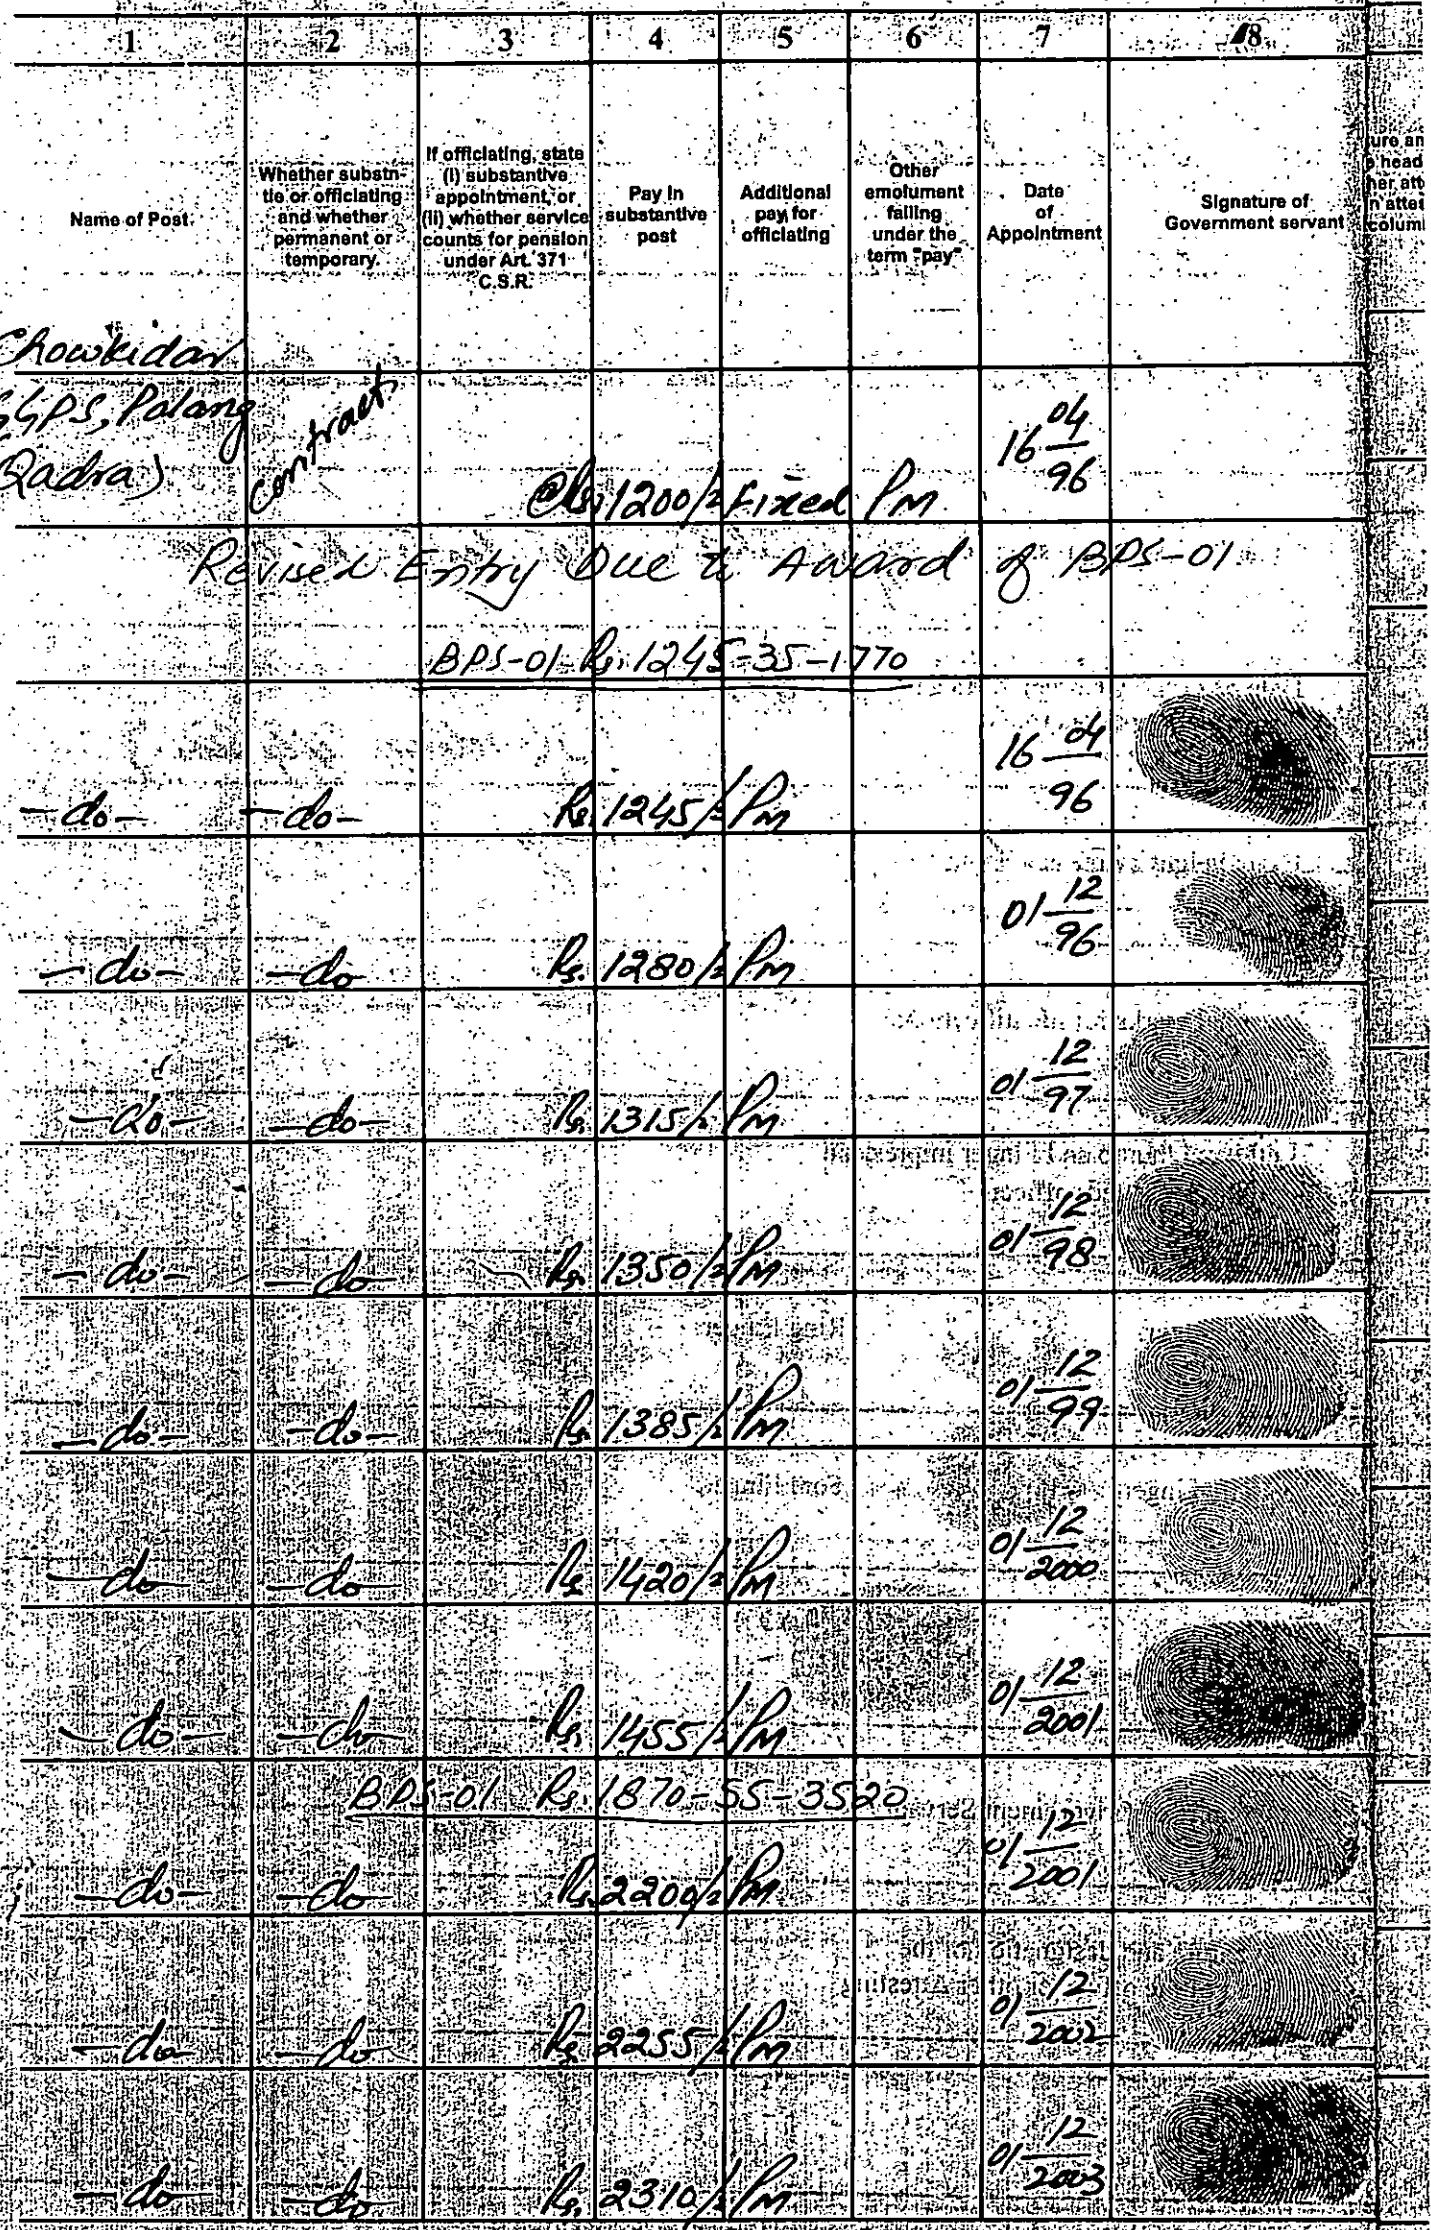 1 2 3 4 5 6 7 8
Name of Post
Whether substn-
tie or officiating
and whether
permanent or
temporary.
If officiating, state
(i) substantive
appointment, or
(ii) whether service
counts for pension
under Art. 371
C.S.R.
Pay in
substantive
post
Additional
pay for
officiating
Other
emolument
falling
under the
term "pay"
Date
of
Appointment
Signature of
Government servant
Chowkidar
GGPS, Palang
Qadra)
contract
@Rs. 1200/- Fixed Pm
16 04/96
Revised Entry Due to Award of BPS-01
BPS-01-Rs. 1245-35-1770
-do- -do- Rs. 1245/- Pm 16 04/96
-do- -do- Rs. 1280/- Pm 01 12/96
-do- -do- Rs. 1315/- Pm 01 12/97
-do- -do- Rs. 1350/- Pm 01 12/98
-do- -do- Rs. 1385/- Pm 01 12/99
-do- -do- Rs. 1420/- Pm 01 12/2000
-do- -do- Rs. 1455/- Pm 01 12/2001
BPS-01 Rs. 1870-55-3520
-do- -do- Rs. 2200/- Pm 01 12/2001
-do- -do- Rs. 2255/- Pm 01 12/2002
-do- -do- Rs. 2310/- Pm 01 12/2003